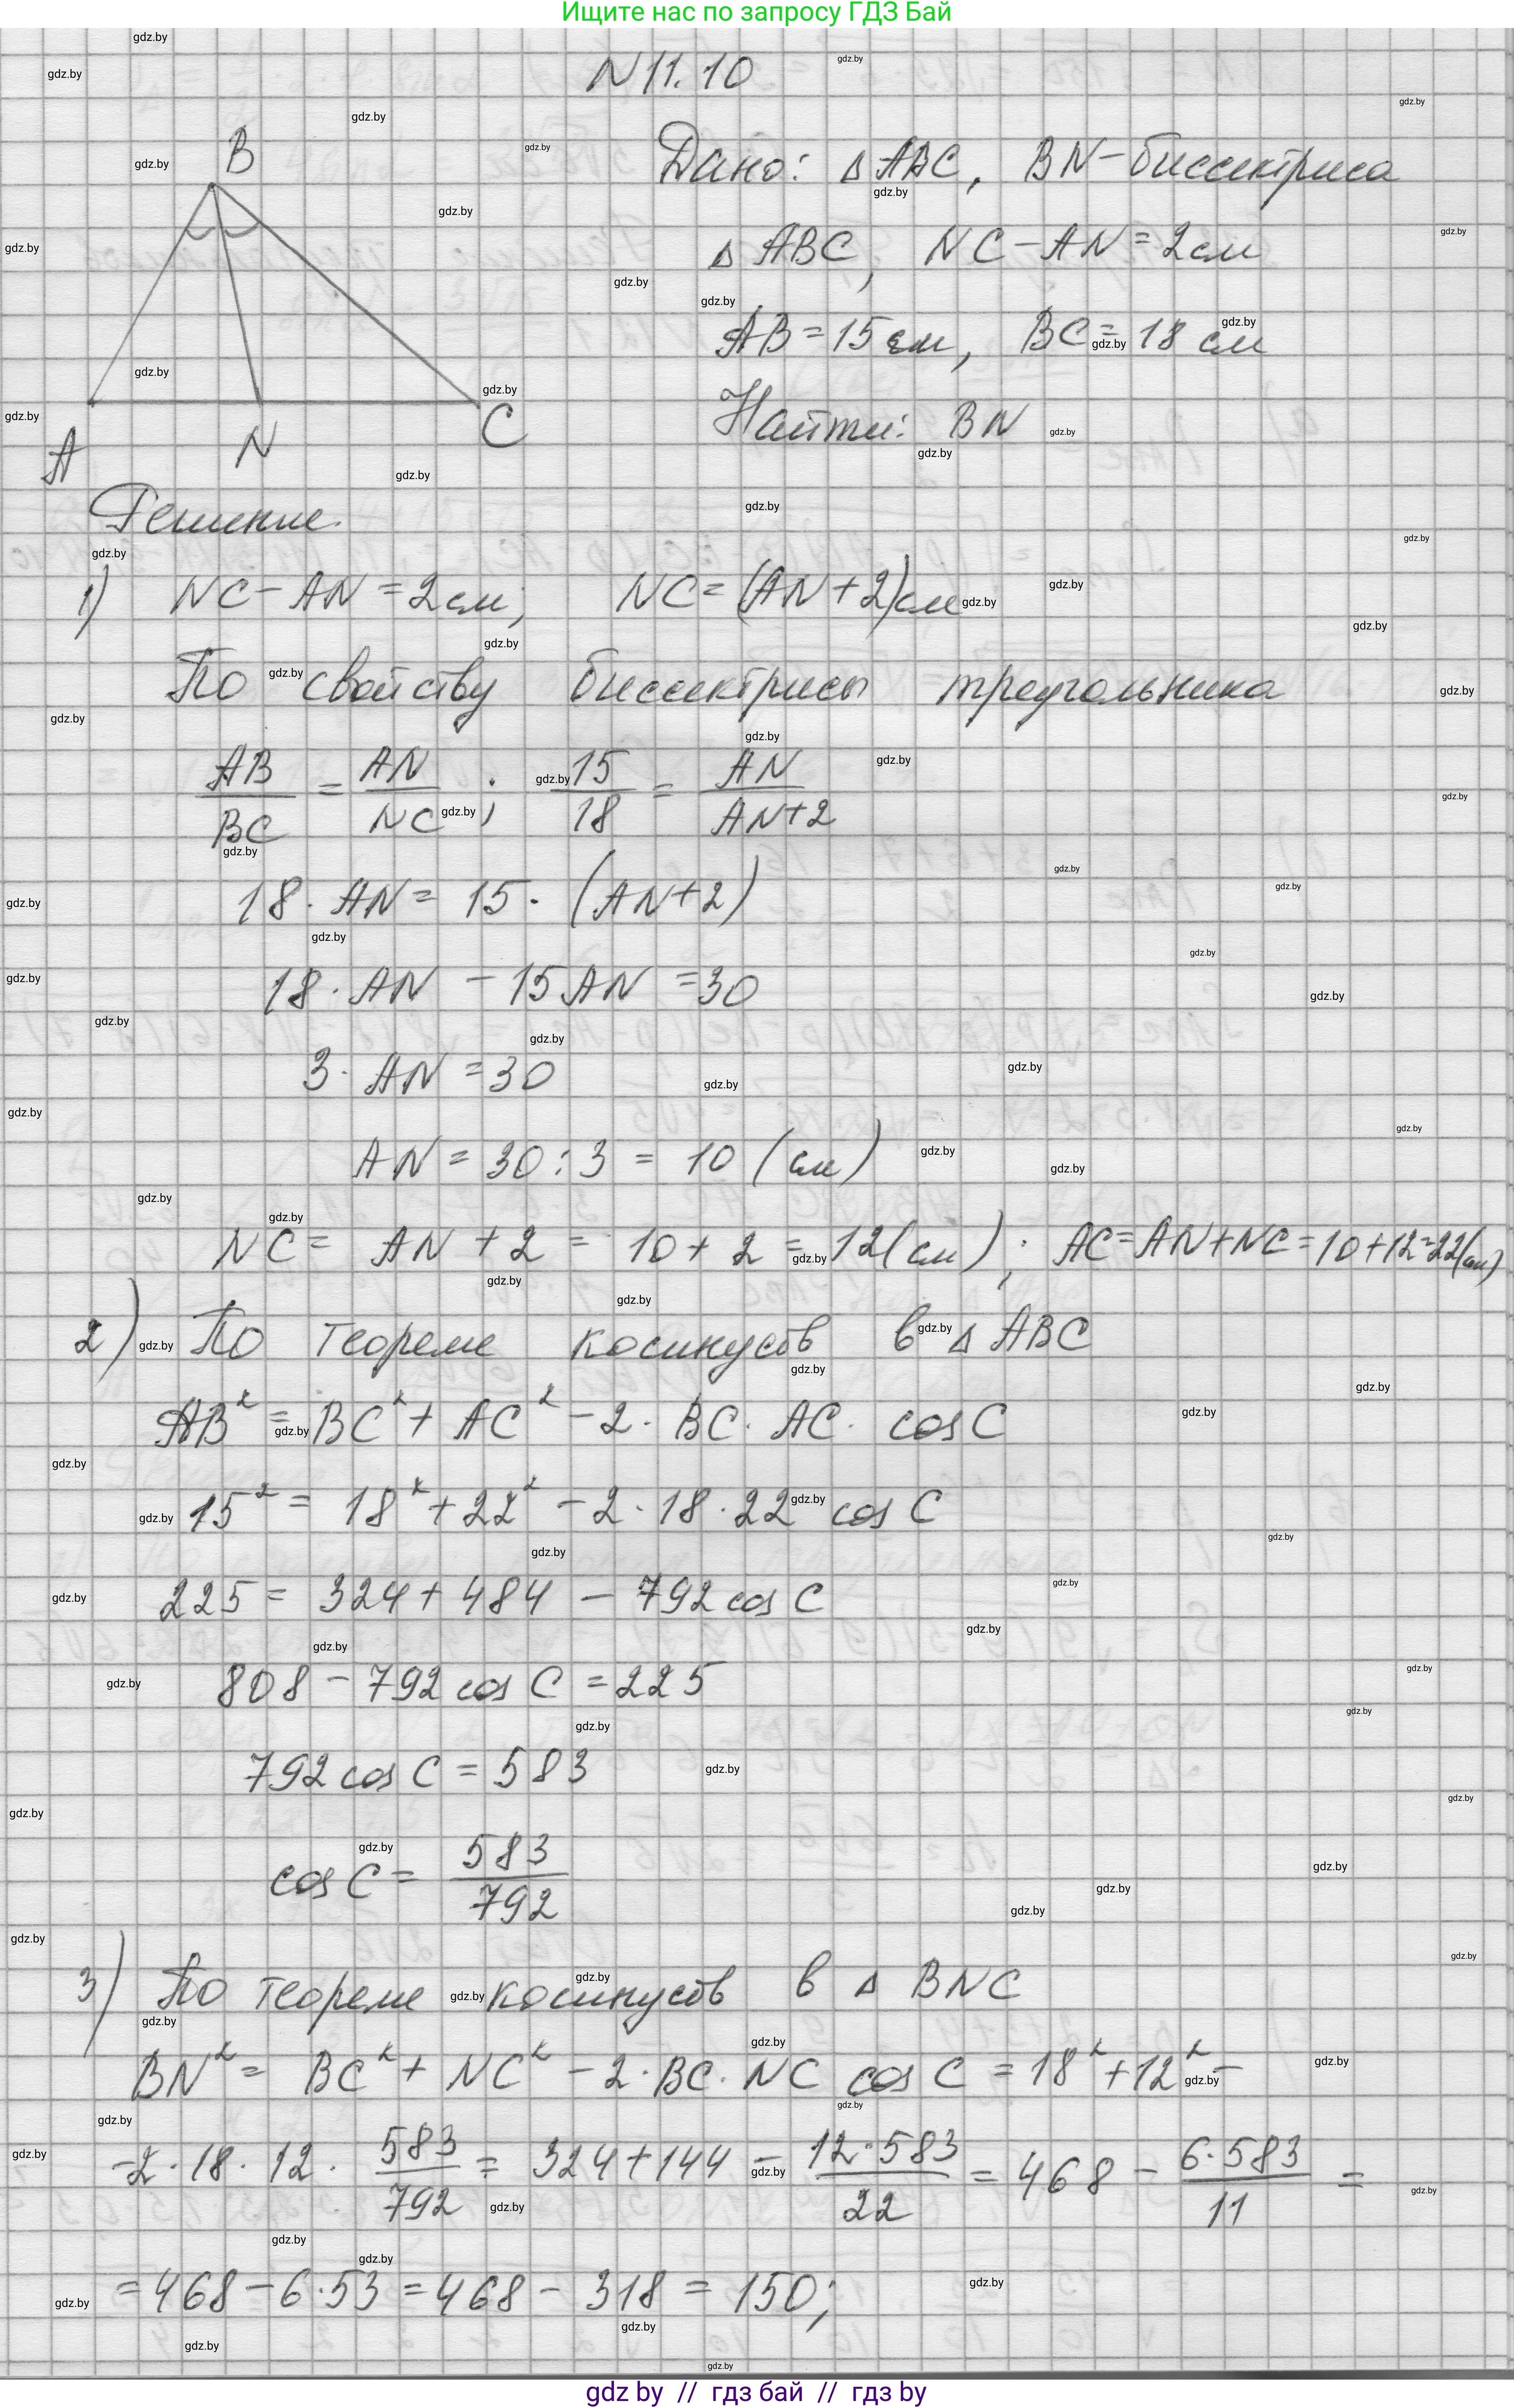 Ищите нас по запросу ГДЗ Бай
N 11.10
B
A
N
C
Дано: △ABC, BN – биссектриса
△ABC, NC – AN = 2 см
AB = 15 см, BC = 18 см
Найти: BN
Решение.
1) NC – AN = 2 см; NC = (AN + 2) см
По свойству биссектрисы треугольника
AB/BC = AN/NC ; 15/18 = AN/(AN+2)
18 · AN = 15 · (AN+2)
18 · AN – 15 AN = 30
3 · AN = 30
AN = 30 : 3 = 10 (см)
NC = AN + 2 = 10 + 2 = 12 (см) ; AC = AN + NC = 10 + 12 = 22 (см)
2) По теореме косинусов в △ABC
AB² = BC² + AC² – 2 · BC · AC · cos C
15² = 18² + 22² – 2 · 18 · 22 cos C
225 = 324 + 484 – 792 cos C
808 – 792 cos C = 225
792 cos C = 583
cos C = 583/792
3) По теореме косинусов в △ BNC
BN² = BC² + NC² – 2 · BC · NC cos C = 18² + 12² –
–2 · 18 · 12 · 583/792 = 324 + 144 – 12·583/22 = 468 – 6·583/11 =
= 468 – 6 · 53 = 468 – 318 = 150;
gdz by // гдз бай // гдз by